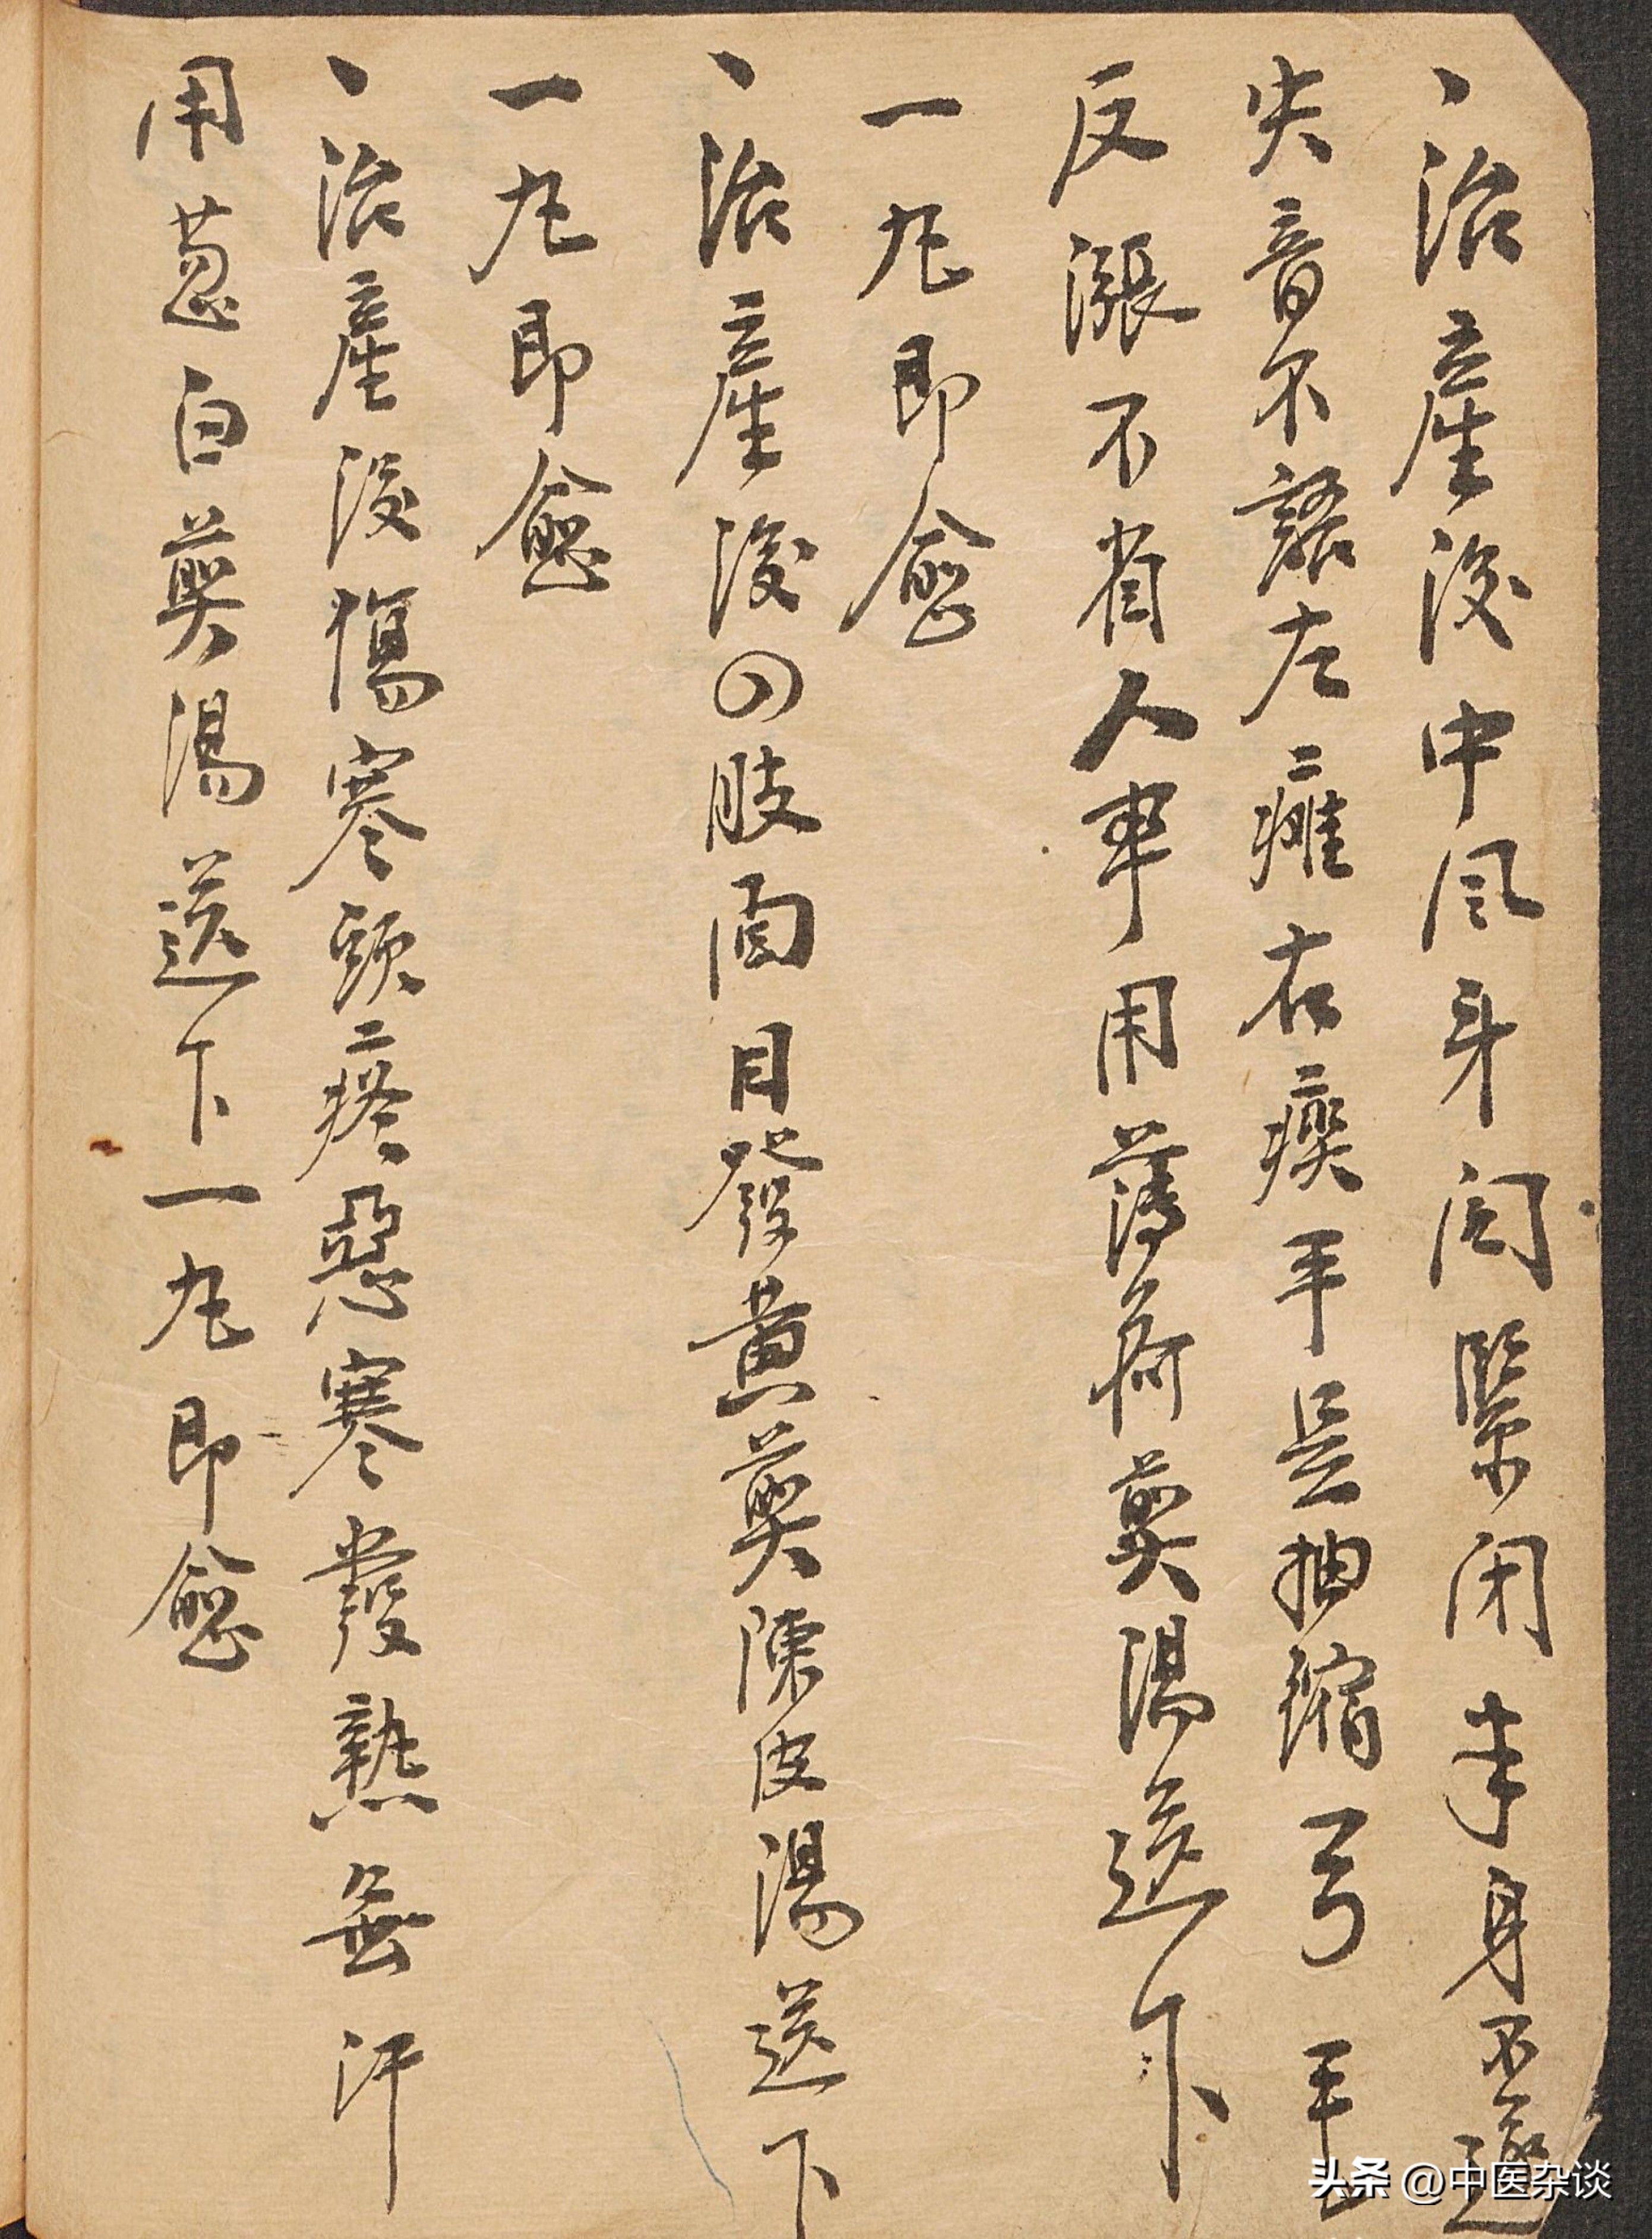 治產後中风身闭緊闭半身不遂
失音不語左癱右瘓手足抽缩弓手
反漲不省人事用薄荷煎湯送下
一丸即愈
治產後四肢面目發黄煎陳皮湯送下
一丸即愈
治產後傷寒頭疼惡寒發熱無汗
用葱白煎湯送下一丸即愈
头条 @中医杂谈